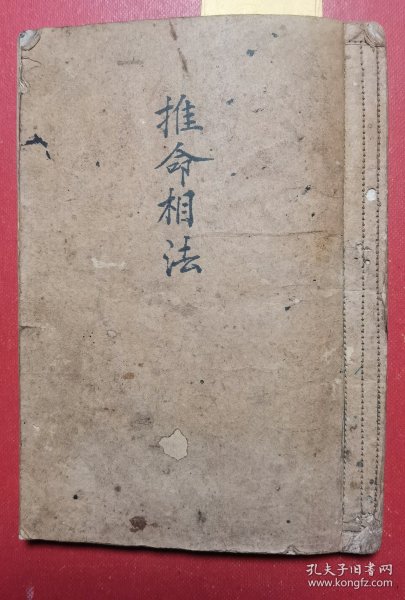 推命相法
孔夫子旧书网
www.kongfz.com